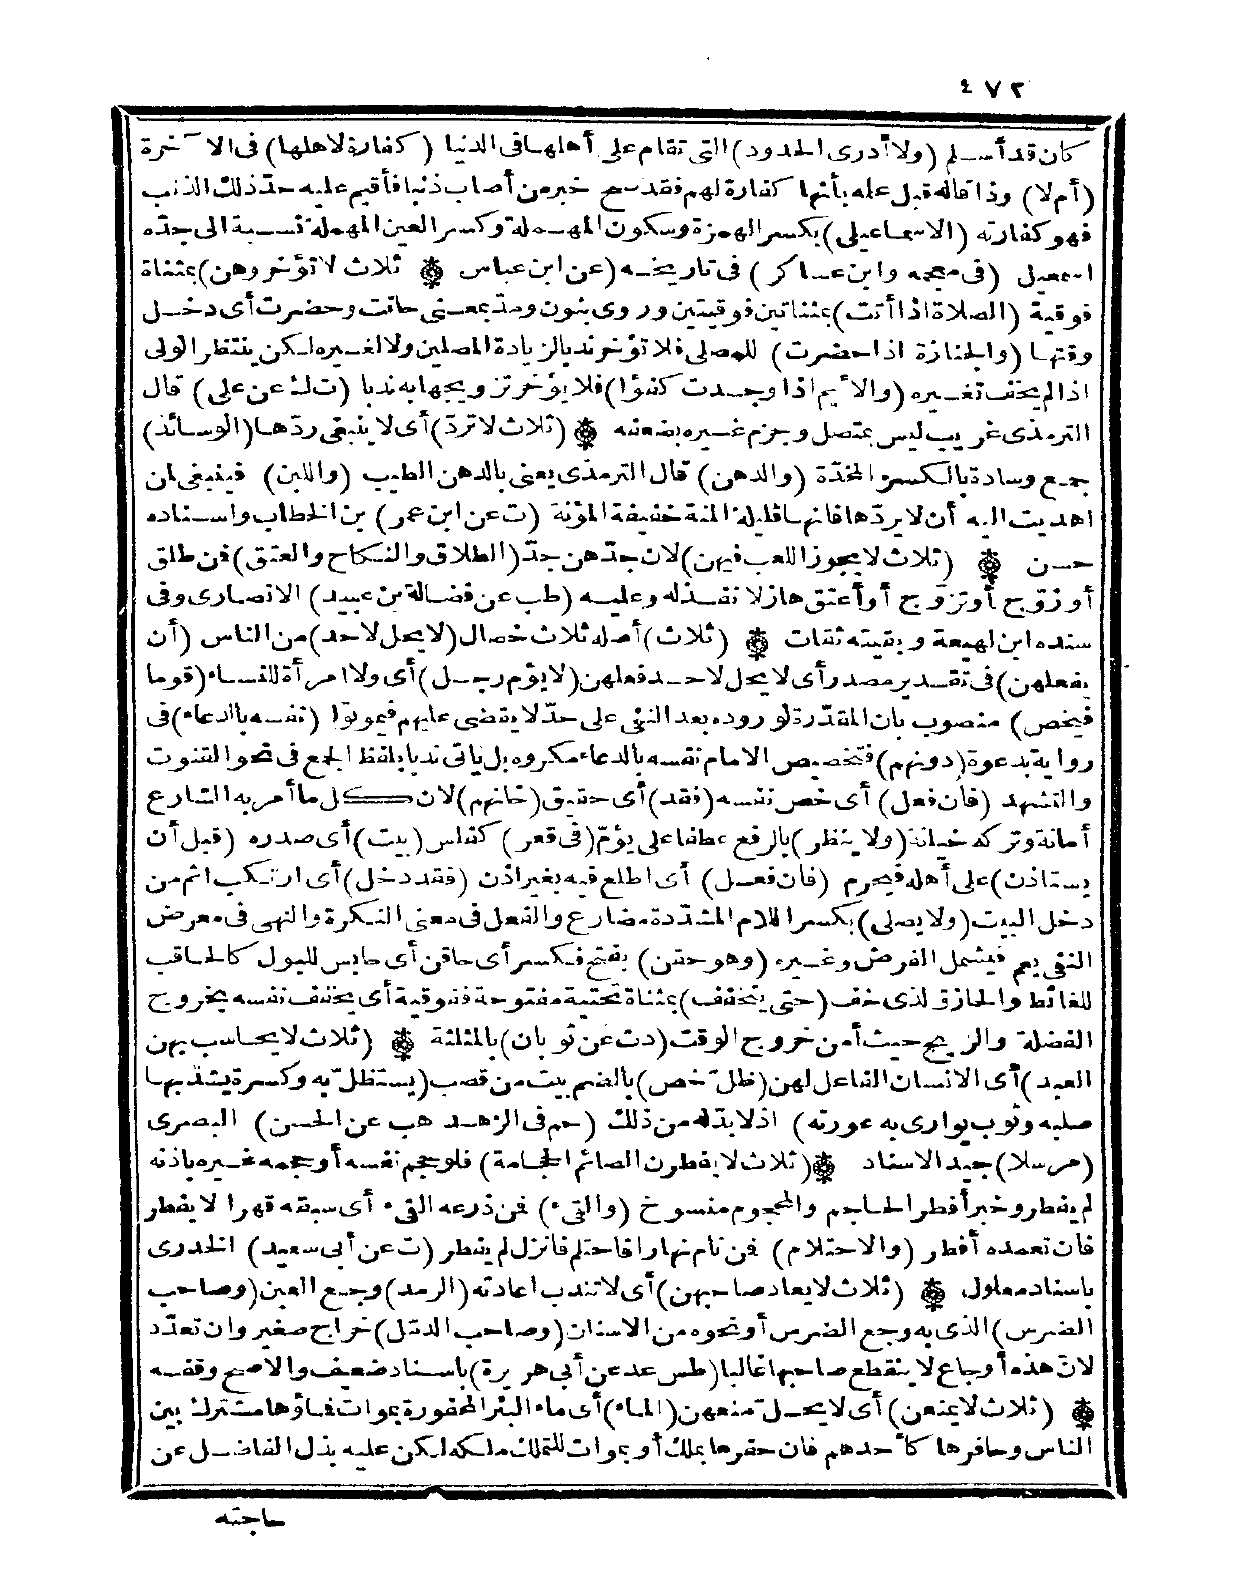 ٤٧٢
كان قد أسلم (ولا أدرى الحدود) التى تقام على أهلها فى الدنيا (كفارة لاهلها) فى الآخرة
(أم لا) وذا قاله قبل علمه بأنها كفارة لهم فقد صح خبر من أصاب ذنبا فأقيم عليه حدّ ذلك الذنب
فهو كفارته (الاسماعيلى) بكسر الهمزة وسكون المهملة وكسر العين المهملة نسبة الى جدّه
اسمعيل (فى معجمه وابن عساكر) فى تاريخه (عن ابن عباس ۞ ثلاث لا تؤخروهن) بمثناة
فوقية (الصلاة اذا أتت) بمثناتين فوقيتين وروى بنون ومدّ بمعنى حانت وحضرت أى دخل
وقتها (والجنازة اذا حضرت) للمصلى فلا تؤخر ندبا لزيادة المصلين ولا لغيره لكن ينتظر الولى
اذا لم يخف تغيره (والأيم اذا وجدت كفؤا) فلا يؤخر تزويجها به ندبا (ت ك عن على) قال
الترمذى غريب ليس بمتصل وجزم غيره بضعفه ۞ (ثلاث لا تردّ) أى لا ينبغى ردّها (الوسائد)
جمع وسادة بالكسر المخدّة (والدهن) قال الترمذى يعنى بالدهن الطيب (واللبن) فينبغى لمن
اهديت اليه أن لا يردّها فانها قليلة المنة خفيفة المؤنة (ت عن ابن عمر) بن الخطاب واسناده
حسن ۞ (ثلاث لا يجوز اللعب فيهن) لان جدّهن جدّ (الطلاق والنكاح والعتق) فمن طلق
أو زوّج أو تزوّج أو أعتق هازلا نفذ له وعليه (طب عن فضالة بن عبيد) الانصارى وفى
سنده ابن لهيعة وبقيته ثقات ۞ (ثلاث) أصله ثلاث خصال (لا يحل لاحد) من الناس (أن
يفعلهن) فى تقدير مصدر أى لا يحل لاحد فعلهن (لا يؤم رجل) أى ولا امرأة للنساء (قوما
فيخص) منصوب بان المقدّرة لوروده بعد النفى على حدّ لا يقضى عليهم فيموتوا (نفسه بالدعاء) فى
رواية بدعوة (دونهم) فتخصيص الامام نفسه بالدعاء مكروه بل يأتى ندبا بلفظ الجمع فى نحو القنوت
والتشهد (فان فعل) أى خص نفسه (فقد) أى حقيق (خانهم) لان كل ما أمر به الشارع
أمانة وتركه خيانة (ولا ينظر) بالرفع عطفا على يؤمّ (فى قعر) كفلس (بيت) أى صدره (قبل أن
يستأذن) على أهله فيحرم (فان فعل) أى اطلع فيه بغير اذن (فقد دخل) أى ارتكب اثم من
دخل البيت (ولا يصلى) بكسر اللام المشدّدة مضارع والفعل فى معنى النكرة والنهى فى معرض
النفى يعم فيشمل الفرض وغيره (وهو حقن) بفتح فكسر أى حاقن أى حابس للبول كالحاقب
للغائط والحازق لذى خف (حتى يتخفف) بمثناة تحتية مفتوحة ففوقية أى يخفف نفسه بخروج
الفضلة والريح حيث أمن خروج الوقت (د ت عن ثوبان) بالمثلثة ۞ (ثلاث لا يحاسب بهن
العبد) أى الانسان الفاعل لهن (ظل خص) بالضم بيت من قصب (يستظل به وكسرة يشدّ بها
صلبه وثوب يوارى به عورته) اذ لا بدّ له من ذلك (حم فى الزهد هب عن الحسن) البصرى
(مرسلا) جيد الاسناد ۞ (ثلاث لا يفطرن الصائم الحجامة) فلو حجم نفسه أو حجمه غيره باذنه
لم يفطر وخبر أفطر الحاجم والمحجوم منسوخ (والقىء) فمن ذرعه القىء أى سبقه قهرا لا يفطر
فان تعمده أفطر (والاحتلام) فمن نام نهارا فاحتلم فانزل لم يفطر (ت عن أبى سعيد) الخدرى
باسناد معلول ۞ (ثلاث لا يعاد صاحبهن) أى لا تندب اعادته (الرمد) وجع العين (وصاحب
الضرس) الذى به وجع الضرس أو نحوه من الاسنان (وصاحب الدمّل) خراج صغير وان تعدّد
لانّ هذه أوجاع لا ينقطع صاحبها غالبا (طس عد عن أبى هريرة) باسناد ضعيف والاصح وقفه
۞ (ثلاث لا يمنعن) أى لا يحل منعهن (الماء) أى ماء البئر المحفورة بموات فماؤها مشترك بين
الناس وحافرها كأحدهم فان حفرها بملك أو بموات للتملك ملكه لكن عليه بذل الفاضل عن
حاجته